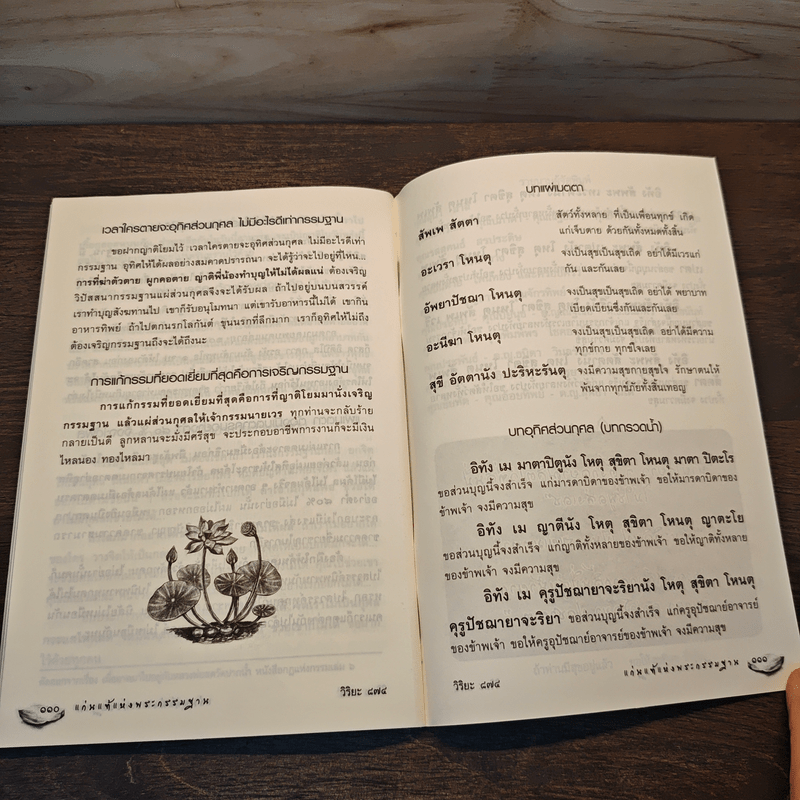 เวลาใครตายจะอุทิศส่วนกุศล ไม่มีอะไรดีเท่ากรรมฐาน
ขอฝากญาติโยมไว้ เวลาใครตายจะอุทิศส่วนกุศล ไม่มีอะไรดีเท่า
กรรมฐาน อุทิศให้ได้ผลอย่างสมคาดปรารถนา จะได้รู้ว่าจะไปอยู่ที่ไหน...
การที่ฆ่าตัวตาย ผูกคอตาย ญาติพี่น้องทำบุญให้ไม่ได้ผลแน่ ต้องเจริญ
วิปัสสนากรรมฐานแผ่ส่วนกุศลจึงจะได้รับผล ถ้าไปอยู่บนบนสวรรค์
เราทำบุญสังฆทานไป เขาก็รับอนุโมทนา แต่เขารับอาหารนี้ไม่ได้ เขากิน
อาหารทิพย์ ถ้าไปตกนรกโลกันต์ ขุมนรกที่ลึกมาก เราก็อุทิศให้ไม่ถึง
ต้องเจริญกรรมฐานถึงจะได้ถึงนะ
การแก้กรรมที่ยอดเยี่ยมที่สุดคือการเจริญกรรมฐาน
การแก้กรรมที่ยอดเยี่ยมที่สุดคือการที่ญาติโยมมานั่งเจริญ
กรรมฐาน แล้วแผ่ส่วนกุศลให้เจ้ากรรมนายเวร ทุกท่านจะกลับร้าย
กลายเป็นดี ลูกหลานจะมั่งมีศรีสุข จะประกอบอาชีพการงานก็จะมีเงิน
ไหลนอง ทองไหลมา
วิริยะ ๘๗๔
๑๑๐ แก่นแท้แห่งพระกรรมฐาน
บทแผ่เมตตา
สัพเพ สัตตา สัตว์ทั้งหลาย ที่เป็นเพื่อนทุกข์ เกิด
แก่เจ็บตาย ด้วยกันทั้งหมดทั้งสิ้น
อะเวรา โหนตุ จงเป็นสุขเป็นสุขเถิด อย่าได้มีเวรแก่
กัน และกันเลย
อัพยาปัชฌา โหนตุ จงเป็นสุขเป็นสุขเถิด อย่าได้ พยาบาท
เบียดเบียนซึ่งกันและกันเลย
อะนีฆา โหนตุ จงเป็นสุขเป็นสุขเถิด อย่าได้มีความ
ทุกข์กาย ทุกข์ใจเลย
สุขี อัตตานัง ปะริหะรันตุ จงมีความสุขกายสุขใจ รักษาตนให้
พ้นจากทุกข์ภัยทั้งสิ้นเทอญ
บทอุทิศส่วนกุศล (บทกรวดน้ำ)
อิทัง เม มาตาปิตูนัง โหตุ สุขิตา โหนตุ มาตา ปิตะโร
ขอส่วนบุญนี้จงสำเร็จ แก่มารดาบิดาของข้าพเจ้า ขอให้มารดาบิดาของ
ข้าพเจ้า จงมีความสุข
อิทัง เม ญาตีนัง โหตุ สุขิตา โหนตุ ญาตะโย
ขอส่วนบุญนี้จงสำเร็จ แก่ญาติทั้งหลายของข้าพเจ้า ขอให้ญาติทั้งหลาย
ของข้าพเจ้า จงมีความสุข
อิทัง เม คุรูปัชฌายาจะริยานัง โหตุ สุขิตา โหนตุ
คุรูปัชฌายาจะริยา ขอส่วนบุญนี้จงสำเร็จ แก่ครูอุปัชฌาย์อาจารย์
ของข้าพเจ้า ขอให้ครูอุปัชฌาย์อาจารย์ของข้าพเจ้า จงมีความสุข
วิริยะ ๘๗๔
แก่นแท้แห่งพระกรรมฐาน ๑๑๑